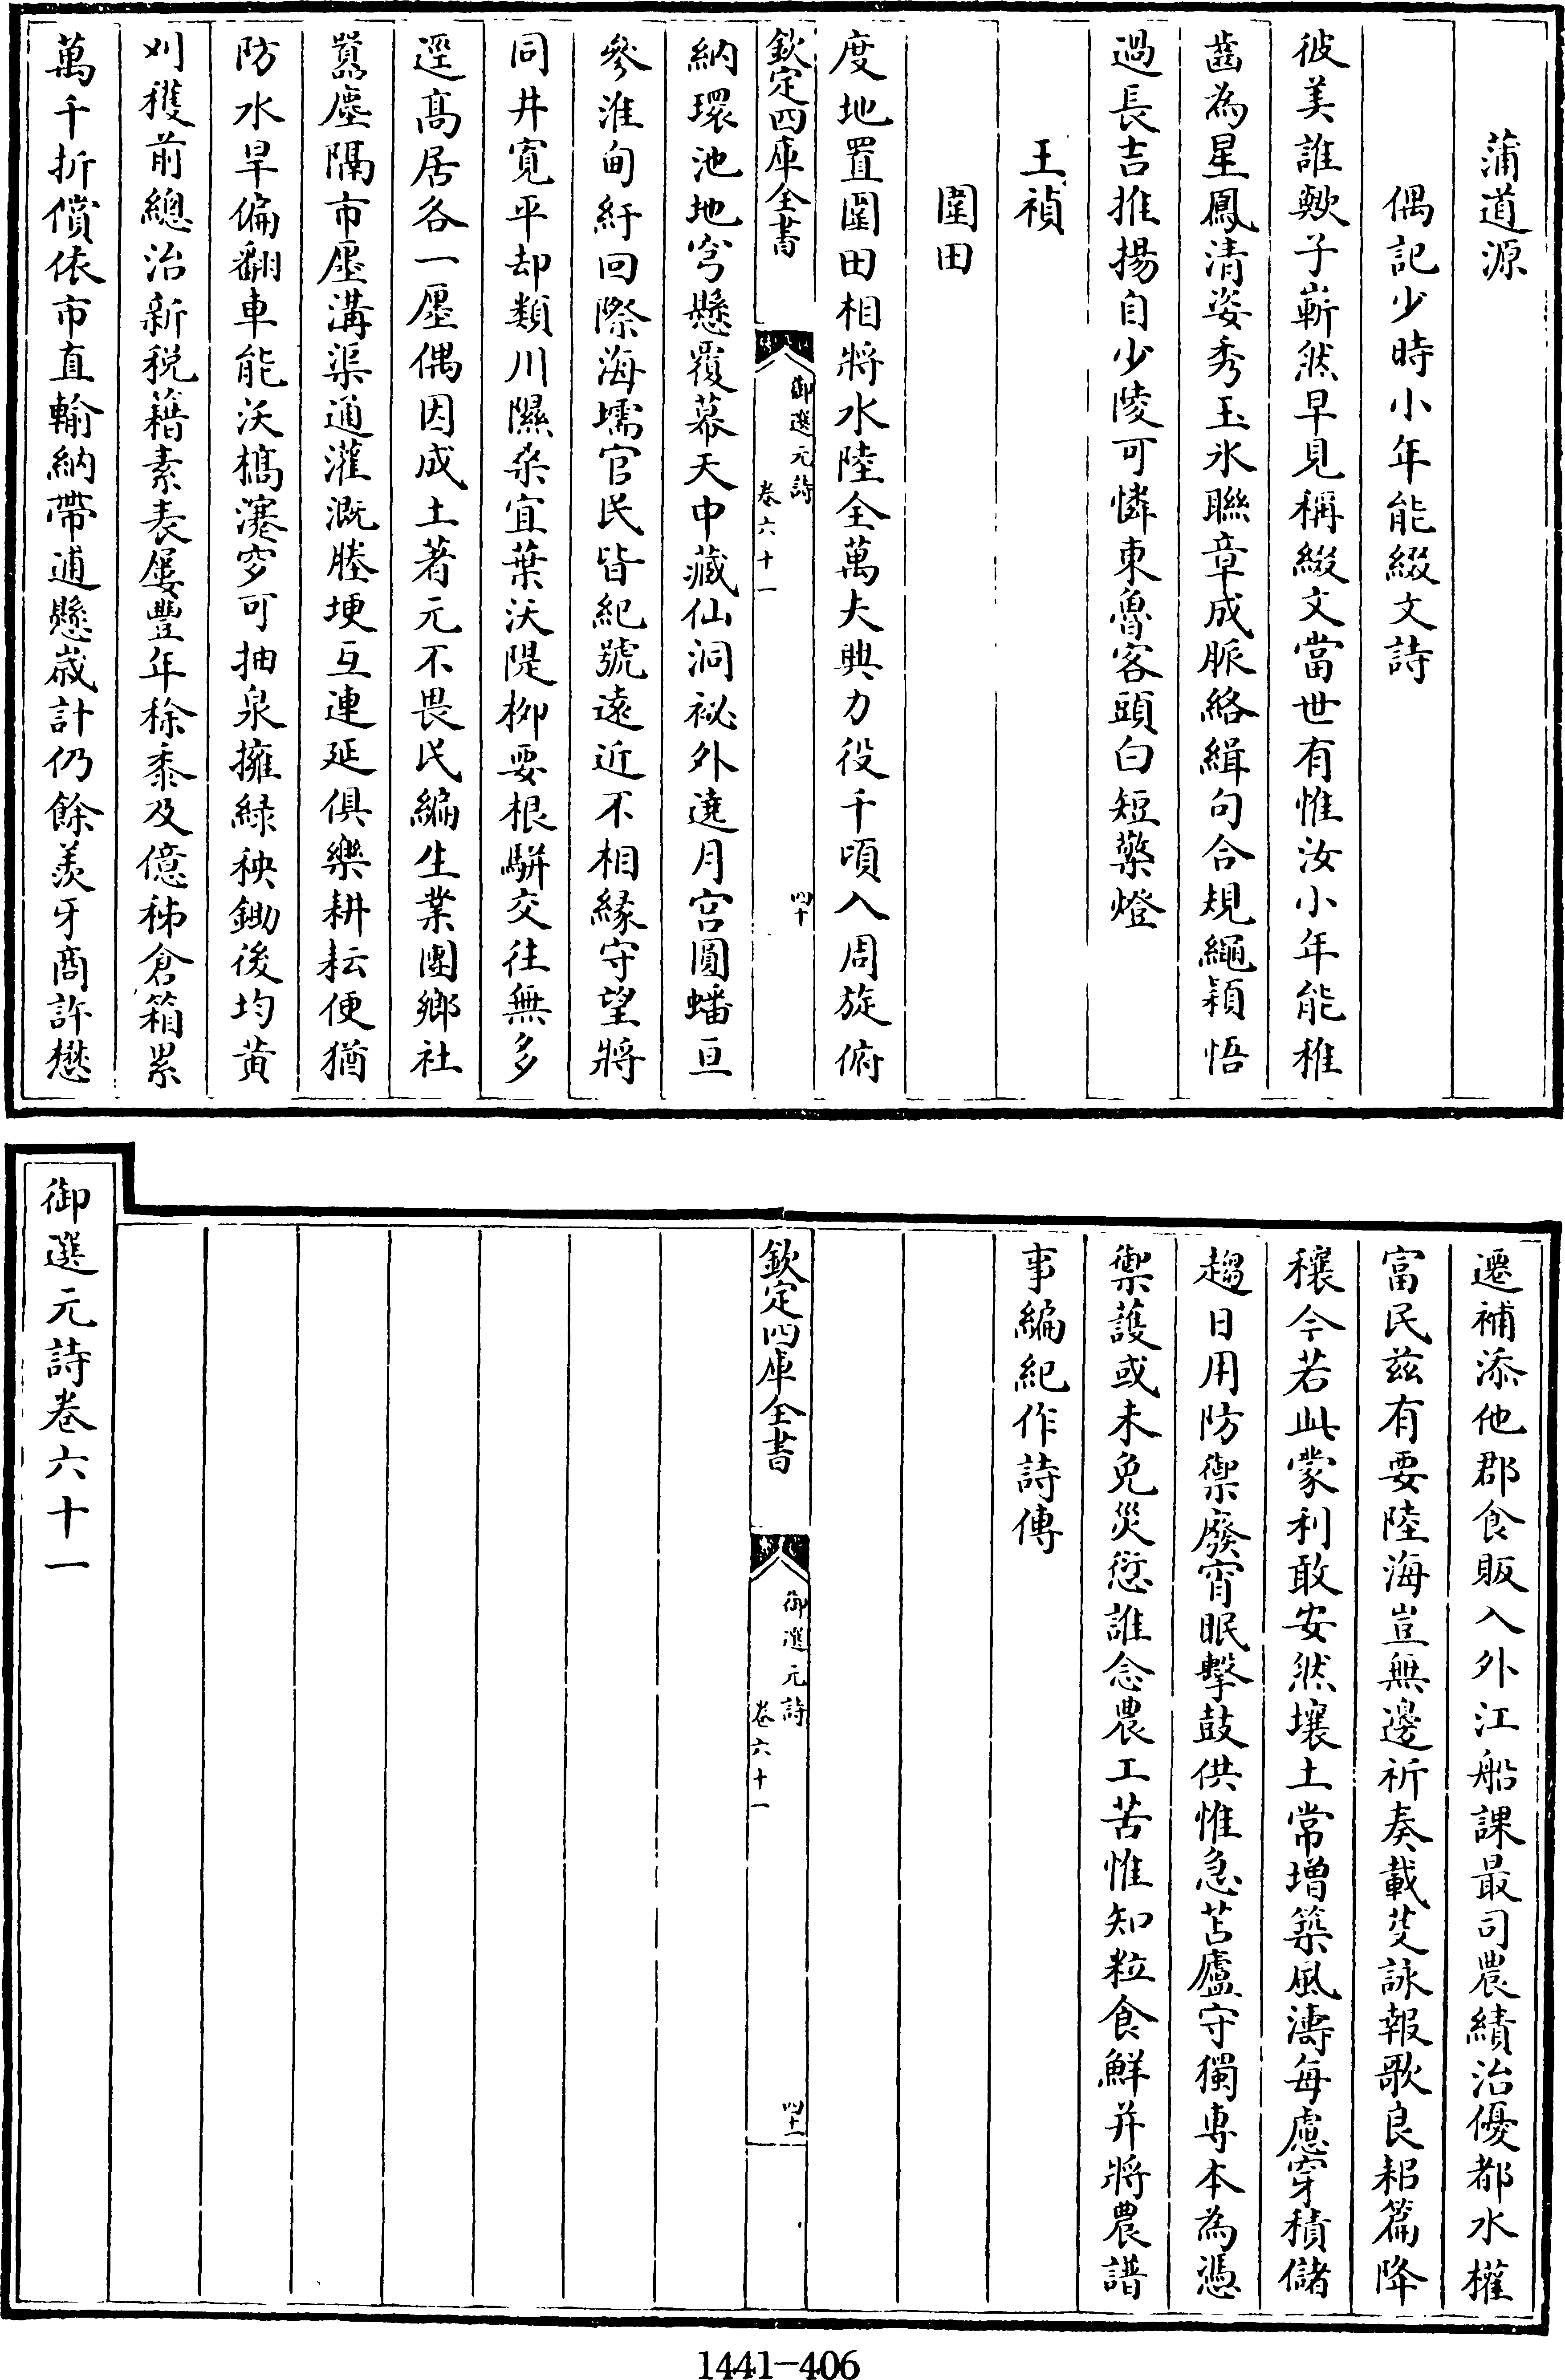 蒲道源
偶記少時小年能綴文詩
彼美誰歟子嶄然早見稱綴文當世有惟汝小年能稚
齒為星鳳清姿秀玉氷聯章成脈絡緝句合規繩穎悟
過長吉推揚自少陵可憐東魯客頭白短檠燈
王禎
圍田
度地置圍田相將水陸全萬夫興力役千頃入周旋俯
欽定四庫全書
御選元詩
卷六十一
四十
納環池地穹懸覆幕天中藏仙洞祕外遶月宮圓蟠亘
參淮甸紆回際海壖官民皆紀號遠近不相緣守望將
同井寛平却類川隰桑宜葉沃隄柳要根駢交往無多
逕髙居各一廛偶因成土著元不畏民編生業團鄉社
囂塵隔市廛溝渠通灌溉塍埂互連延俱樂耕耘便猶
防水旱偏翻車能沃槁瀽穸可抽泉擁緑秧鋤後均黄
刈穫前總治新税籍素表屢豐年稌黍及億秭倉箱累
萬千折償依市直輸納帶逋懸歲計仍餘羨牙商許懋
遷補添他郡食販入外江船課最司農績治優都水權
富民兹有要陸海豈無邊祈奏載芟詠報歌良耜篇降
穰今若此蒙利敢安然壤土常增築風濤每慮穿積儲
趨日用防禦廢宵眠擊鼓供惟急苫廬守獨專本為憑
禦護或未免災愆誰念農工苦惟知粒食鮮并將農譜
事編紀作詩傳
欽定四庫全書
御選元詩
卷六十一
四十一
御選元詩卷六十一
1441-406